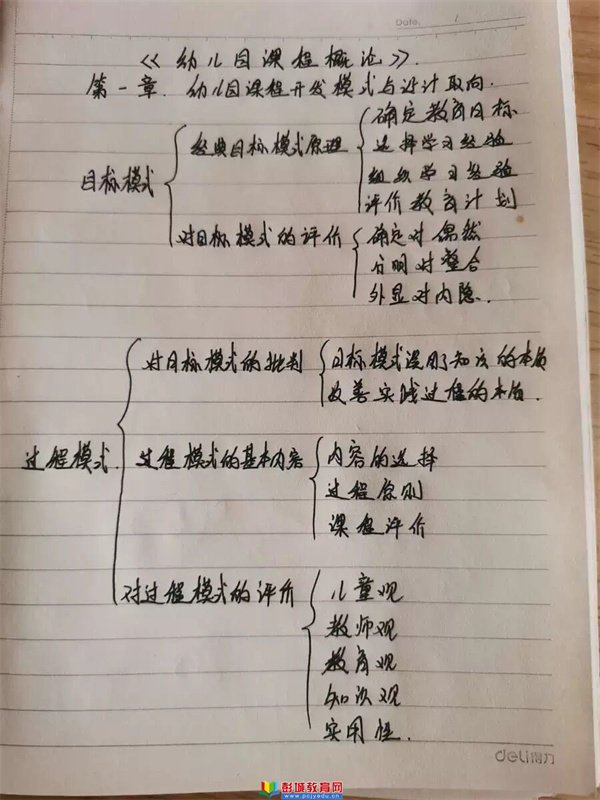 Date. 1
《幼儿园课程概论》.
第一章. 幼儿园课程开发模式与设计取向.
目标模式
经典目标模式原理
确定教育目标
选择学习经验
组织学习经验
评价教育计划
对目标模式的评价
确定对偶然
分明对整合
外显对内隐.
过程模式.
对目标模式的批判
目标模式误用了知识的本质
改善实践过程的本质.
过程模式的基本内容
内容的选择
过程原则
课程评价
对过程模式的评价
儿童观
教师观
教育观
知识观
实用性.
deli得力
彭城教育网
www.pcjyedu.cn